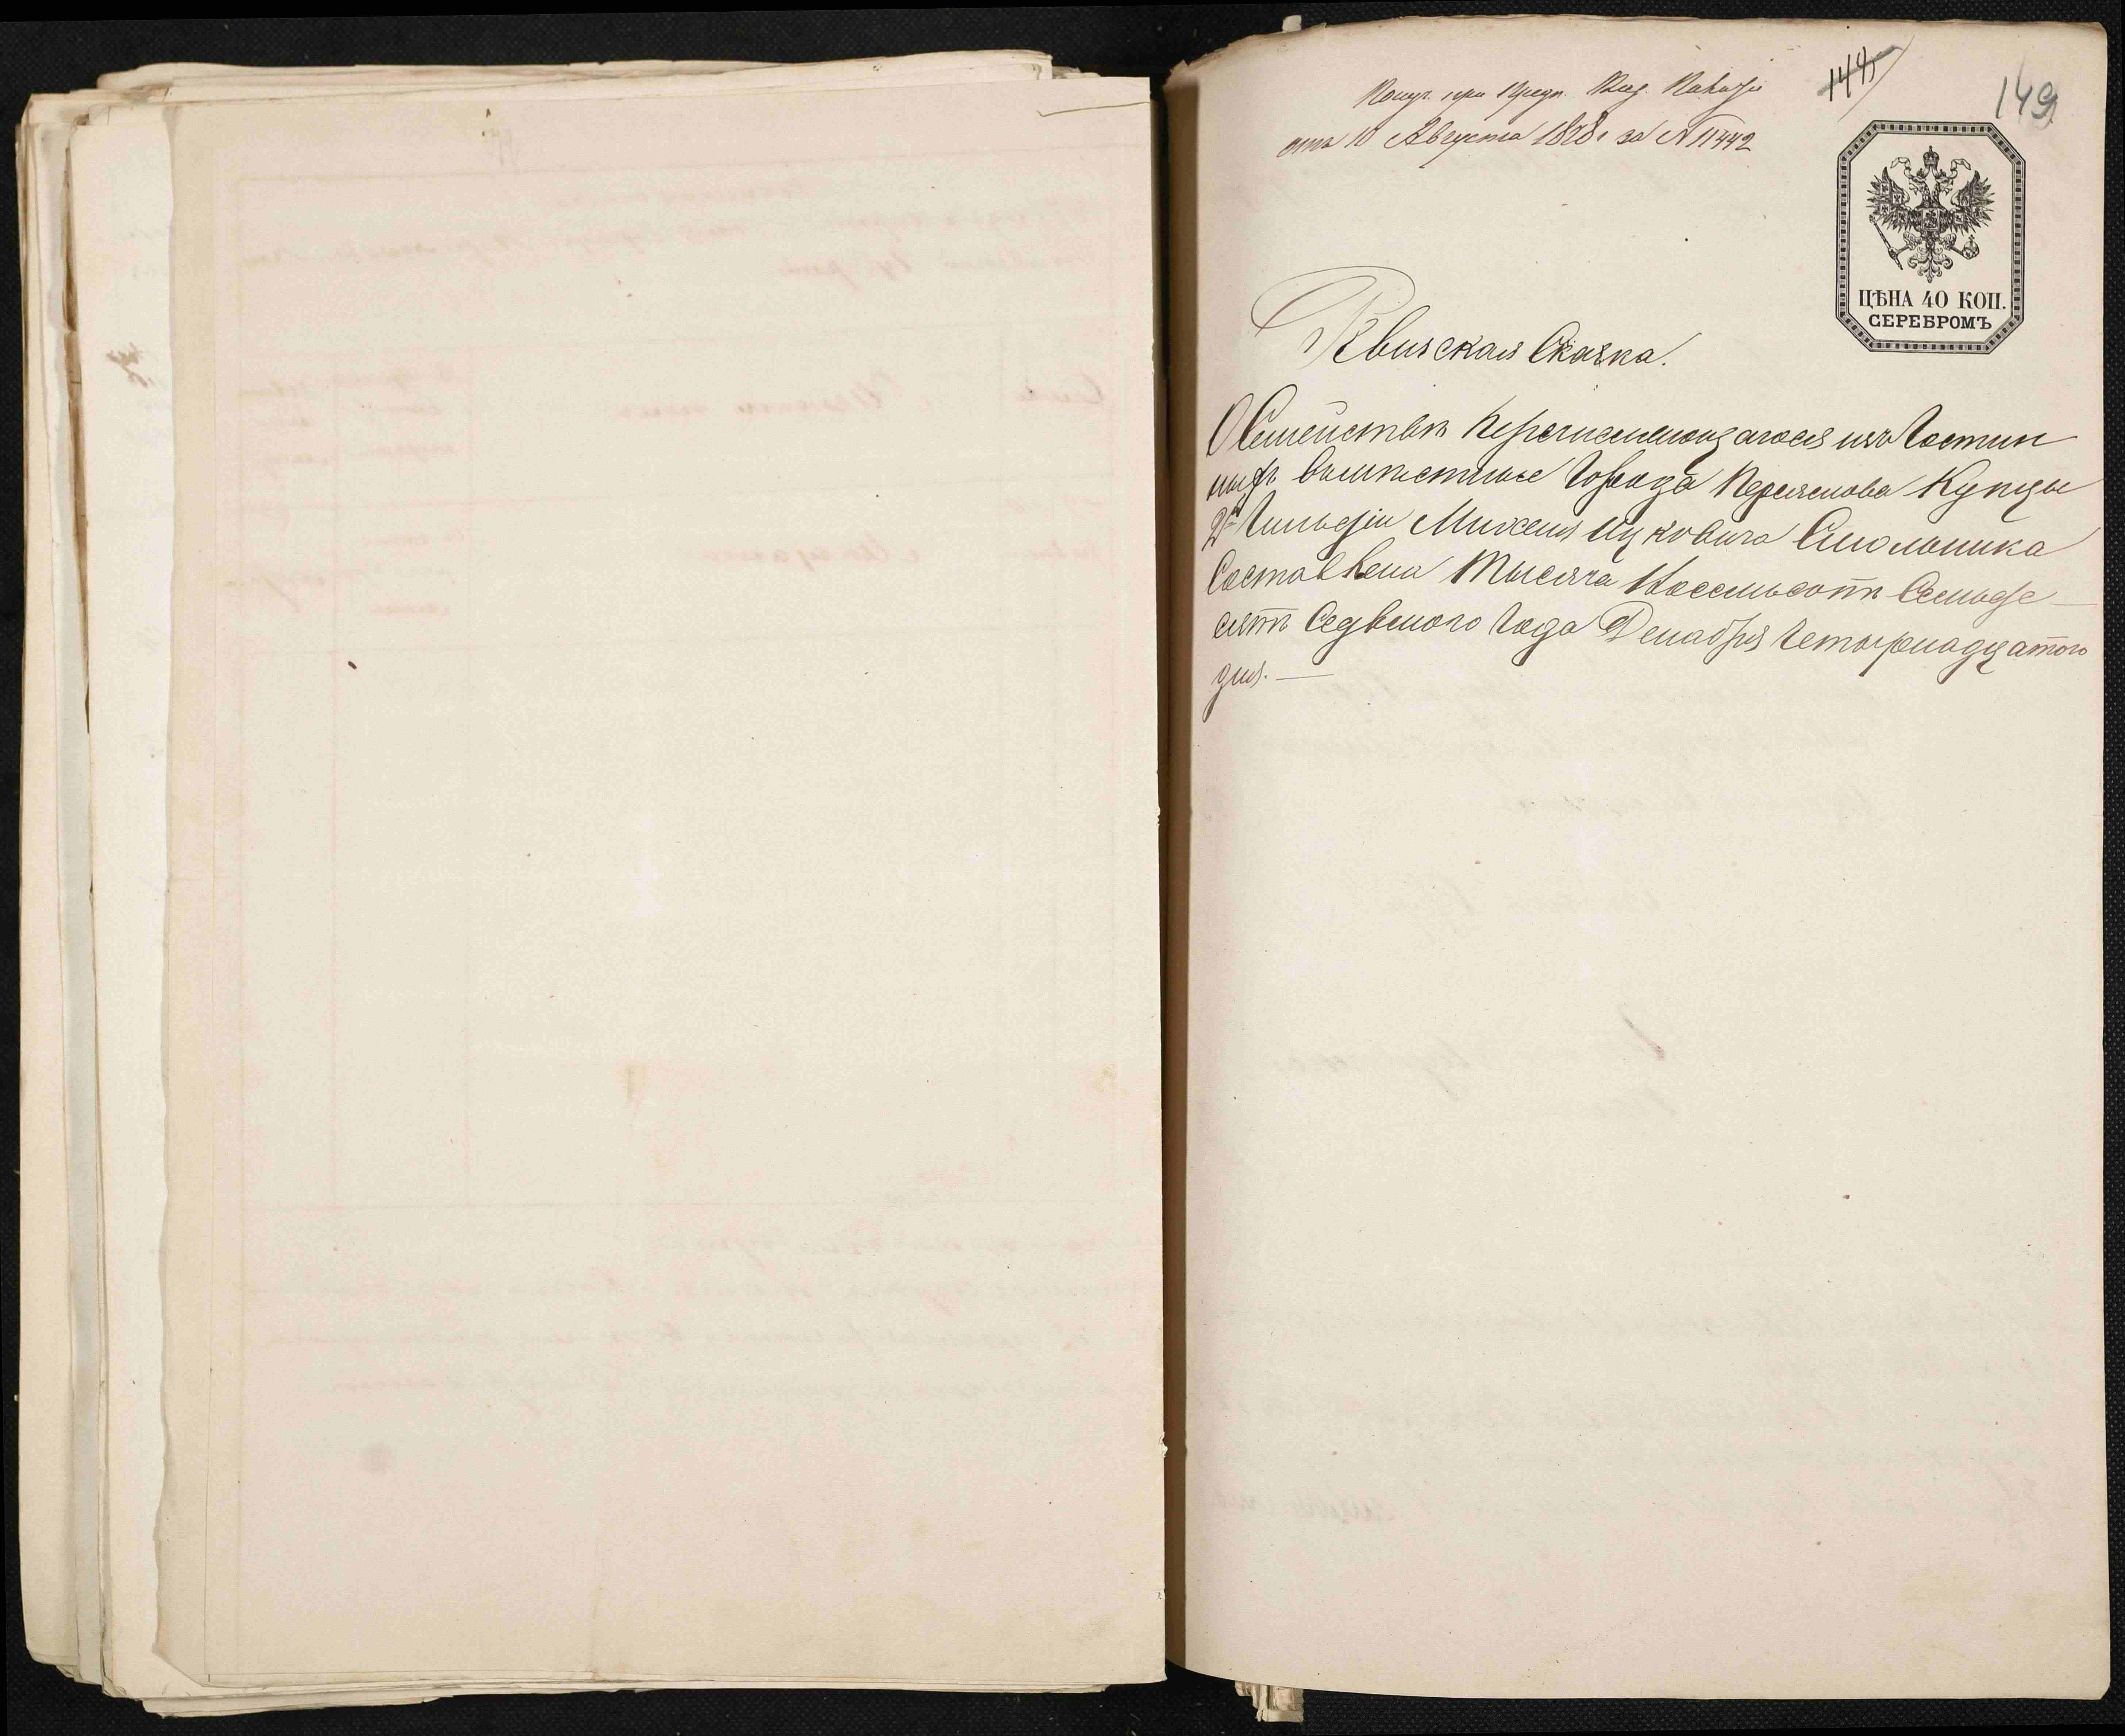 144
149
Получ. при Предп. Каз. Палаты
отъ 10 Августа 1878 г за № 11442
ЦѢНА 40 КОП.
СЕРЕБРОМЪ
Ревизская Сказка.
О Семействѣ Перечисляющагося изъ Гостин
ныхъ въ мѣстные Города Переяслова Купцы
2й Гильдіи Михеля Ицковича Смольника
Составлена Тысяча Восемьсотъ Семьде-
сятъ Седьмого Года Декабря Четырнадцатого
дня.